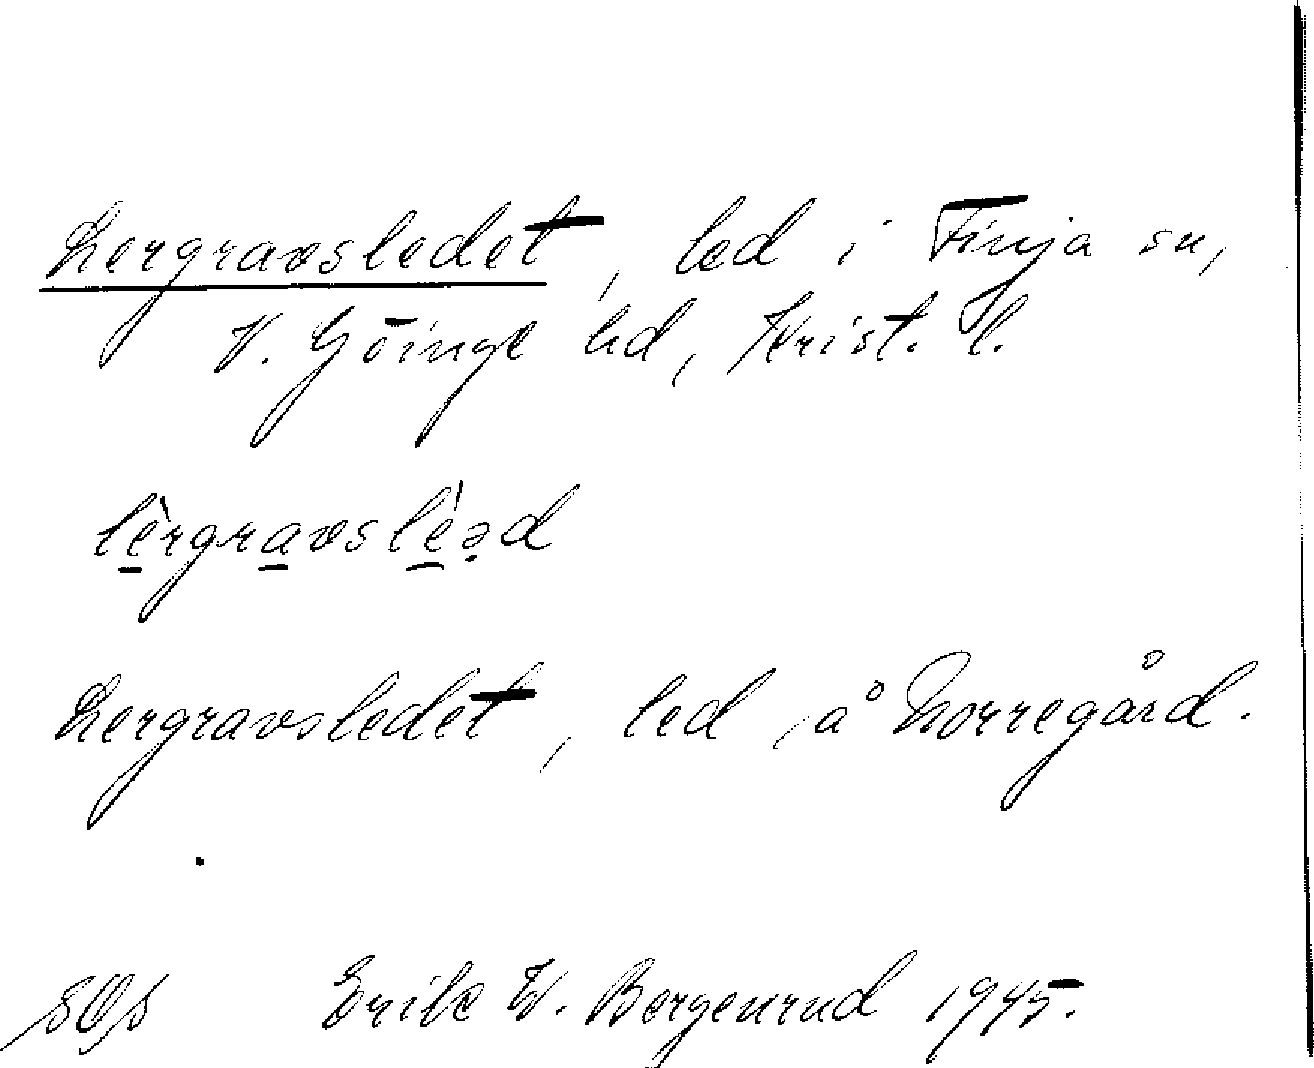 Lergravsledet, led i Finja sn,
V. Göinge hd, Krist. l.
lèrgravslèəd
Lergravsledet, led å Norregård.
Erik W. Bergenrud 1945.